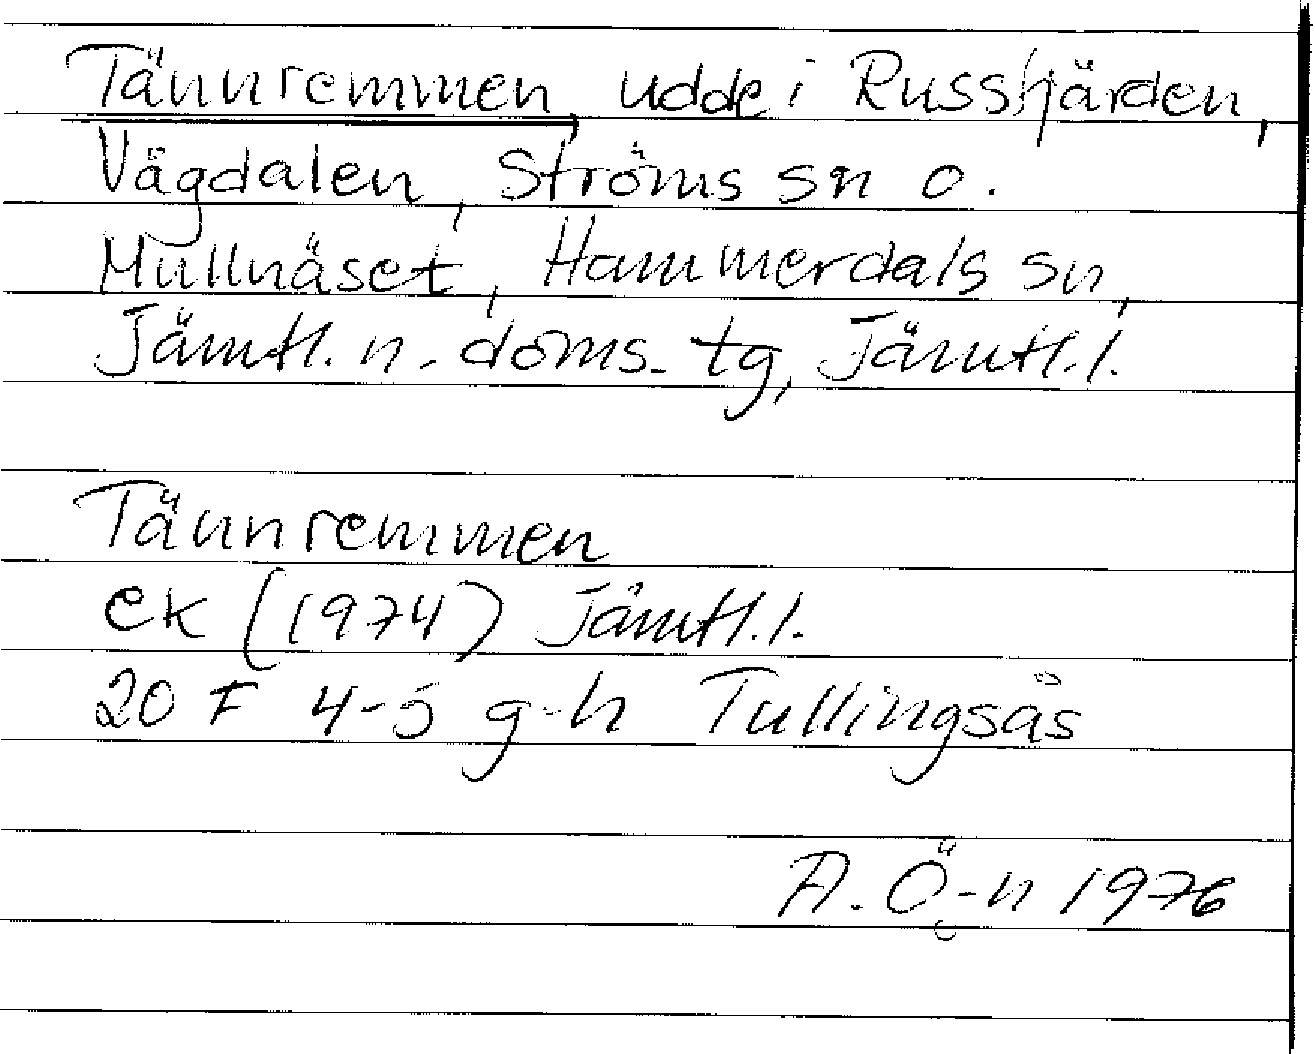 Tännremmen, udde i Russfjärden,
Vägdalen, Ströms sn o.
Mullnäset, Hammerdals sn,
Jämtl. n. doms. tg, Jämtl. l.
Tännremmen
ek (1974) Jämtl. l.
20 F 4-5 g-h Tullingsås
A. Ö-n 1976